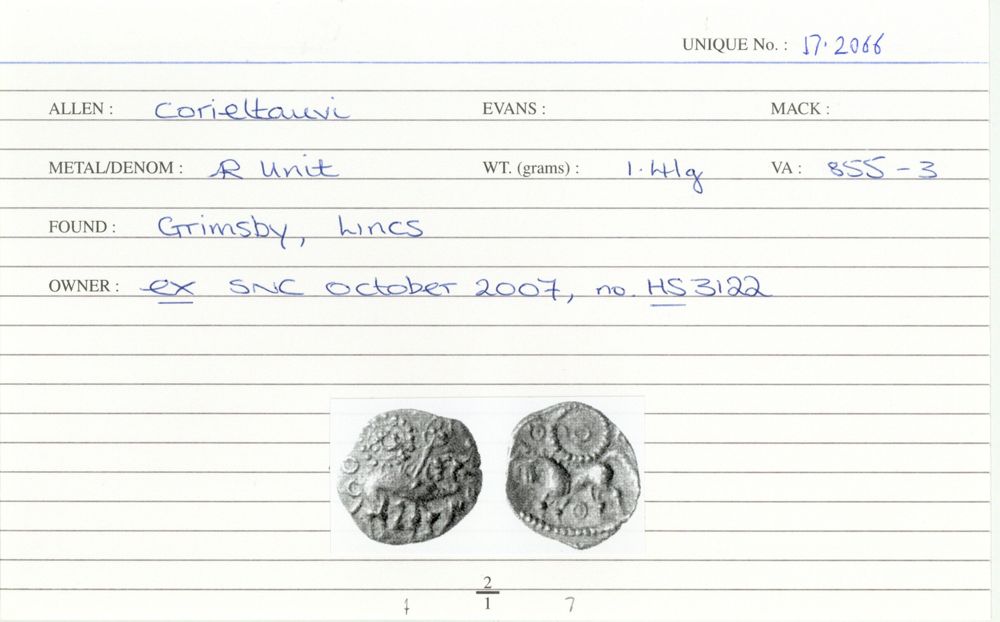 UNIQUE No. : 17.2066
ALLEN : Corieltauvi EVANS : MACK :
METAL/DENOM : Æ Unit WT. (grams) : 1.41g VA : 855-3
FOUND : Grimsby, Lincs
OWNER : ex SNC October 2007, no. HS3122
2
1
7